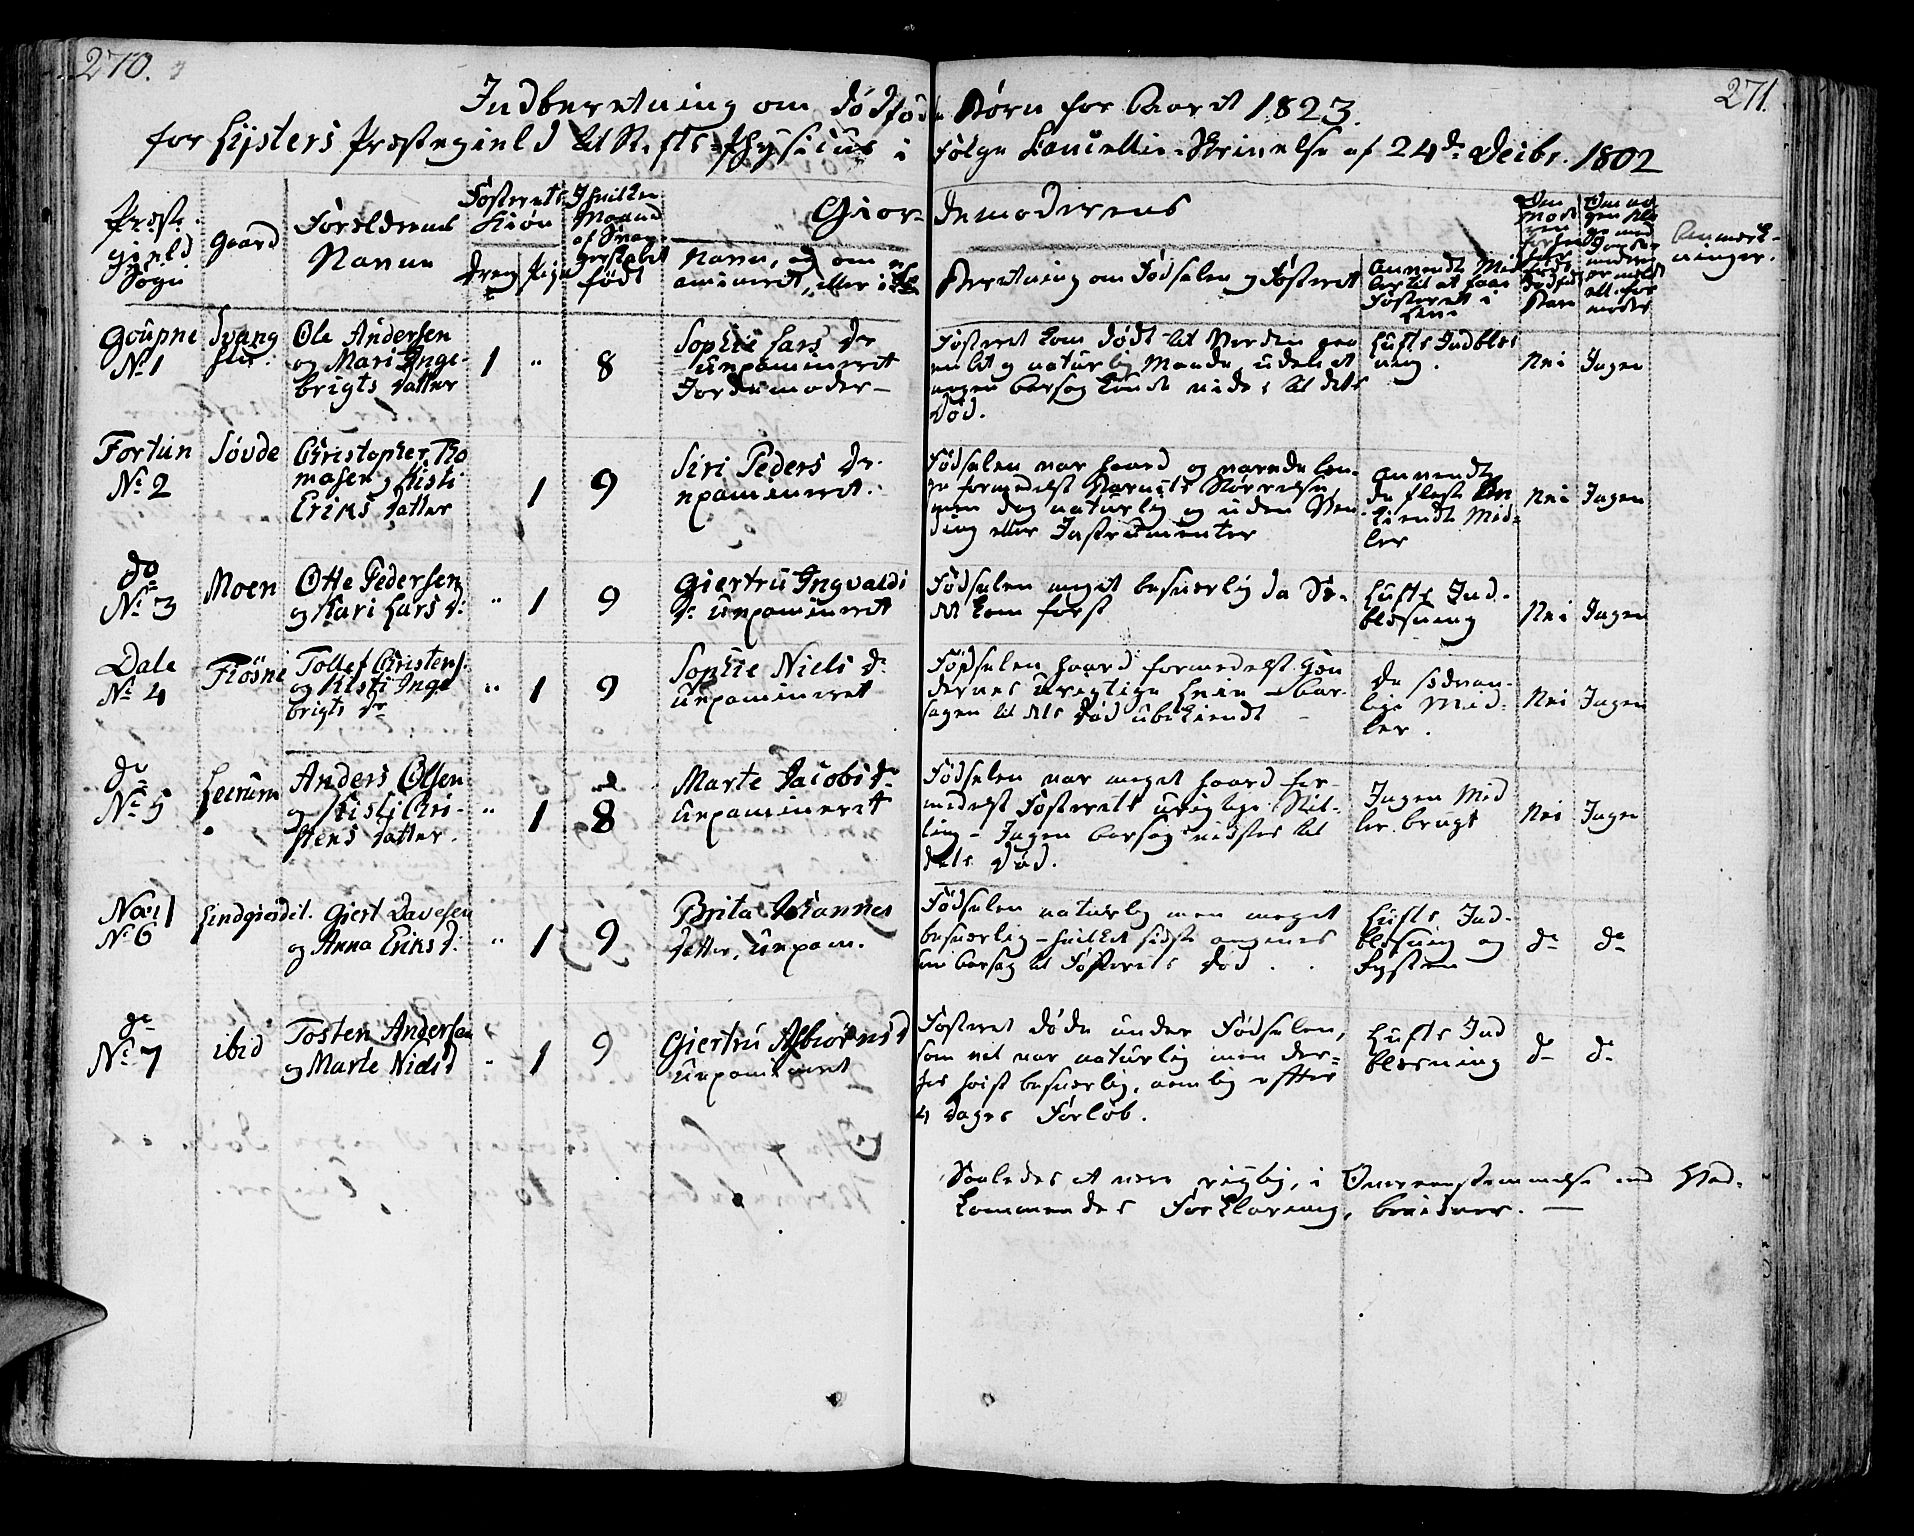 270.
271.
Indberetning om dødfødte Børn for Aaret 1823.
for Lysters Præstegield til Stifts-Physicus i følge Cancellie-Skrivelse af 24de Decbr. 1802
Præste-
gield
Sogn
Gaard
Forældrenes
Navne
Fosterets
Kiøn
Dreng Pige
I hvilken
Maaned
af Svan-
gerskabet
født
Giordemoderens
Navn, og om ex-
amineret, eller ikke
Beretning om Fødselen og Fosteret
Anvendte Mid-
ler til at faae
Fosteret i
Live
Om
Mode-
ren
før har
født
dødfødte
Børn
Anmærk-
ninger.
Goupne
No 1
Ole Andersen
og Mari Inge-
brigts datter
1 " 8
Sophie Lars dr
Unexamineret
Jordemoder
Fosteret kom dødt til Verden gan-
ske let og naturlig Maade, uden at
nogen Aarsag kunde vides til dets
Død.
Lufts Indblæs
ning.
Nei Ingen
Fortun
No 2
Søvde
Christopher Tho
masen og Kisti
Eriks datter
1 9
Siri Peders dr
uexamineret.
Fødselen var haard og varede læn-
ge formedelst Barnets Størrelse,
men dog naturlig og uden Ven-
ding eller Instrumenter
Anvendte
de fleste be
kiendte Mid-
ler
Nei Ingen
do
No 3
Moen
Otte Pedersen
og Kari Lars d.
" 1 9
Giertru Ingvaldi
d. Unexamineret
Fødselen meget besværlig da Sæ-
det kom først
Lufts Ind-
blæsning
Nei Ingen
Dale
No 4
Fiøsne
Tollef Christens.
og Kisti Inge
brigts dr
" 1 9
Sophie Niels d.
Unexamineret
Fødselen haard formedelst Hæn
dernes urigtige Leie – Aar-
sagen til dets Død ubekiendt
de sædvan-
lige Mid-
ler.
Nei Ingen
do
No 5
Leirum
Anders Olsen
og Kisti Chri-
stens datter.
" 1 8
Marte Jacobs dr
Unexamineret
Fødselen var meget haard for-
medelst Fosterets urigtige Stil-
ling – Ingen Aarsag vidstes til
dets Død.
Ingen Mid
ler brugt
Nei Ingen
Næs
No 6
Giert Davesen
og Anna Eriks d.
" 1 9
Brita Johannes
datter, Unexam.
Fødselen naturlig men meget
besværlig – hvilket sidste angives
som Aarsag til Fosterets Død.
Lufts Ind-
blæsning og
do do
do
No 7
ibid
Tosten Andersen
og Marte Niels d
" 1 9
Giertru Asbiørns d
Unexamineret
Fosteret døde under Fødselen,
som vel var naturlig men der-
hos høist besværlig, nemlig efter
4 dages Forløb.
Lufts Ind
blæsning
do do
Saaledes at være rigtig, i Overeensstemmelse med Ved-
kommendes Forklaring, bevidner. —